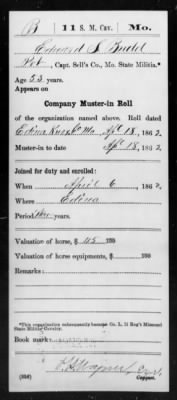 B | 11 S. M. Cav. | Mo.
Edward S.
Pvt, Capt. Sell's Co., Mo. State Militia.*
Age 53 years.
Appears on
Company Muster-in Roll
of the organization named above. Roll dated
Edina Knox Co Mo, Apl 18, 1862
Muster-in to date Apl 18, 1862
Joined for duty and enrolled:
When April 6, 1862
Where Edina
Period years.
Valuation of horse, $ 45 100
Valuation of horse equipments, $ 100
Remarks:
*This organization subsequently became Co. L, 11 Reg't Missouri
State Militia Cavalry.
Book mark:
(356) Copyist.